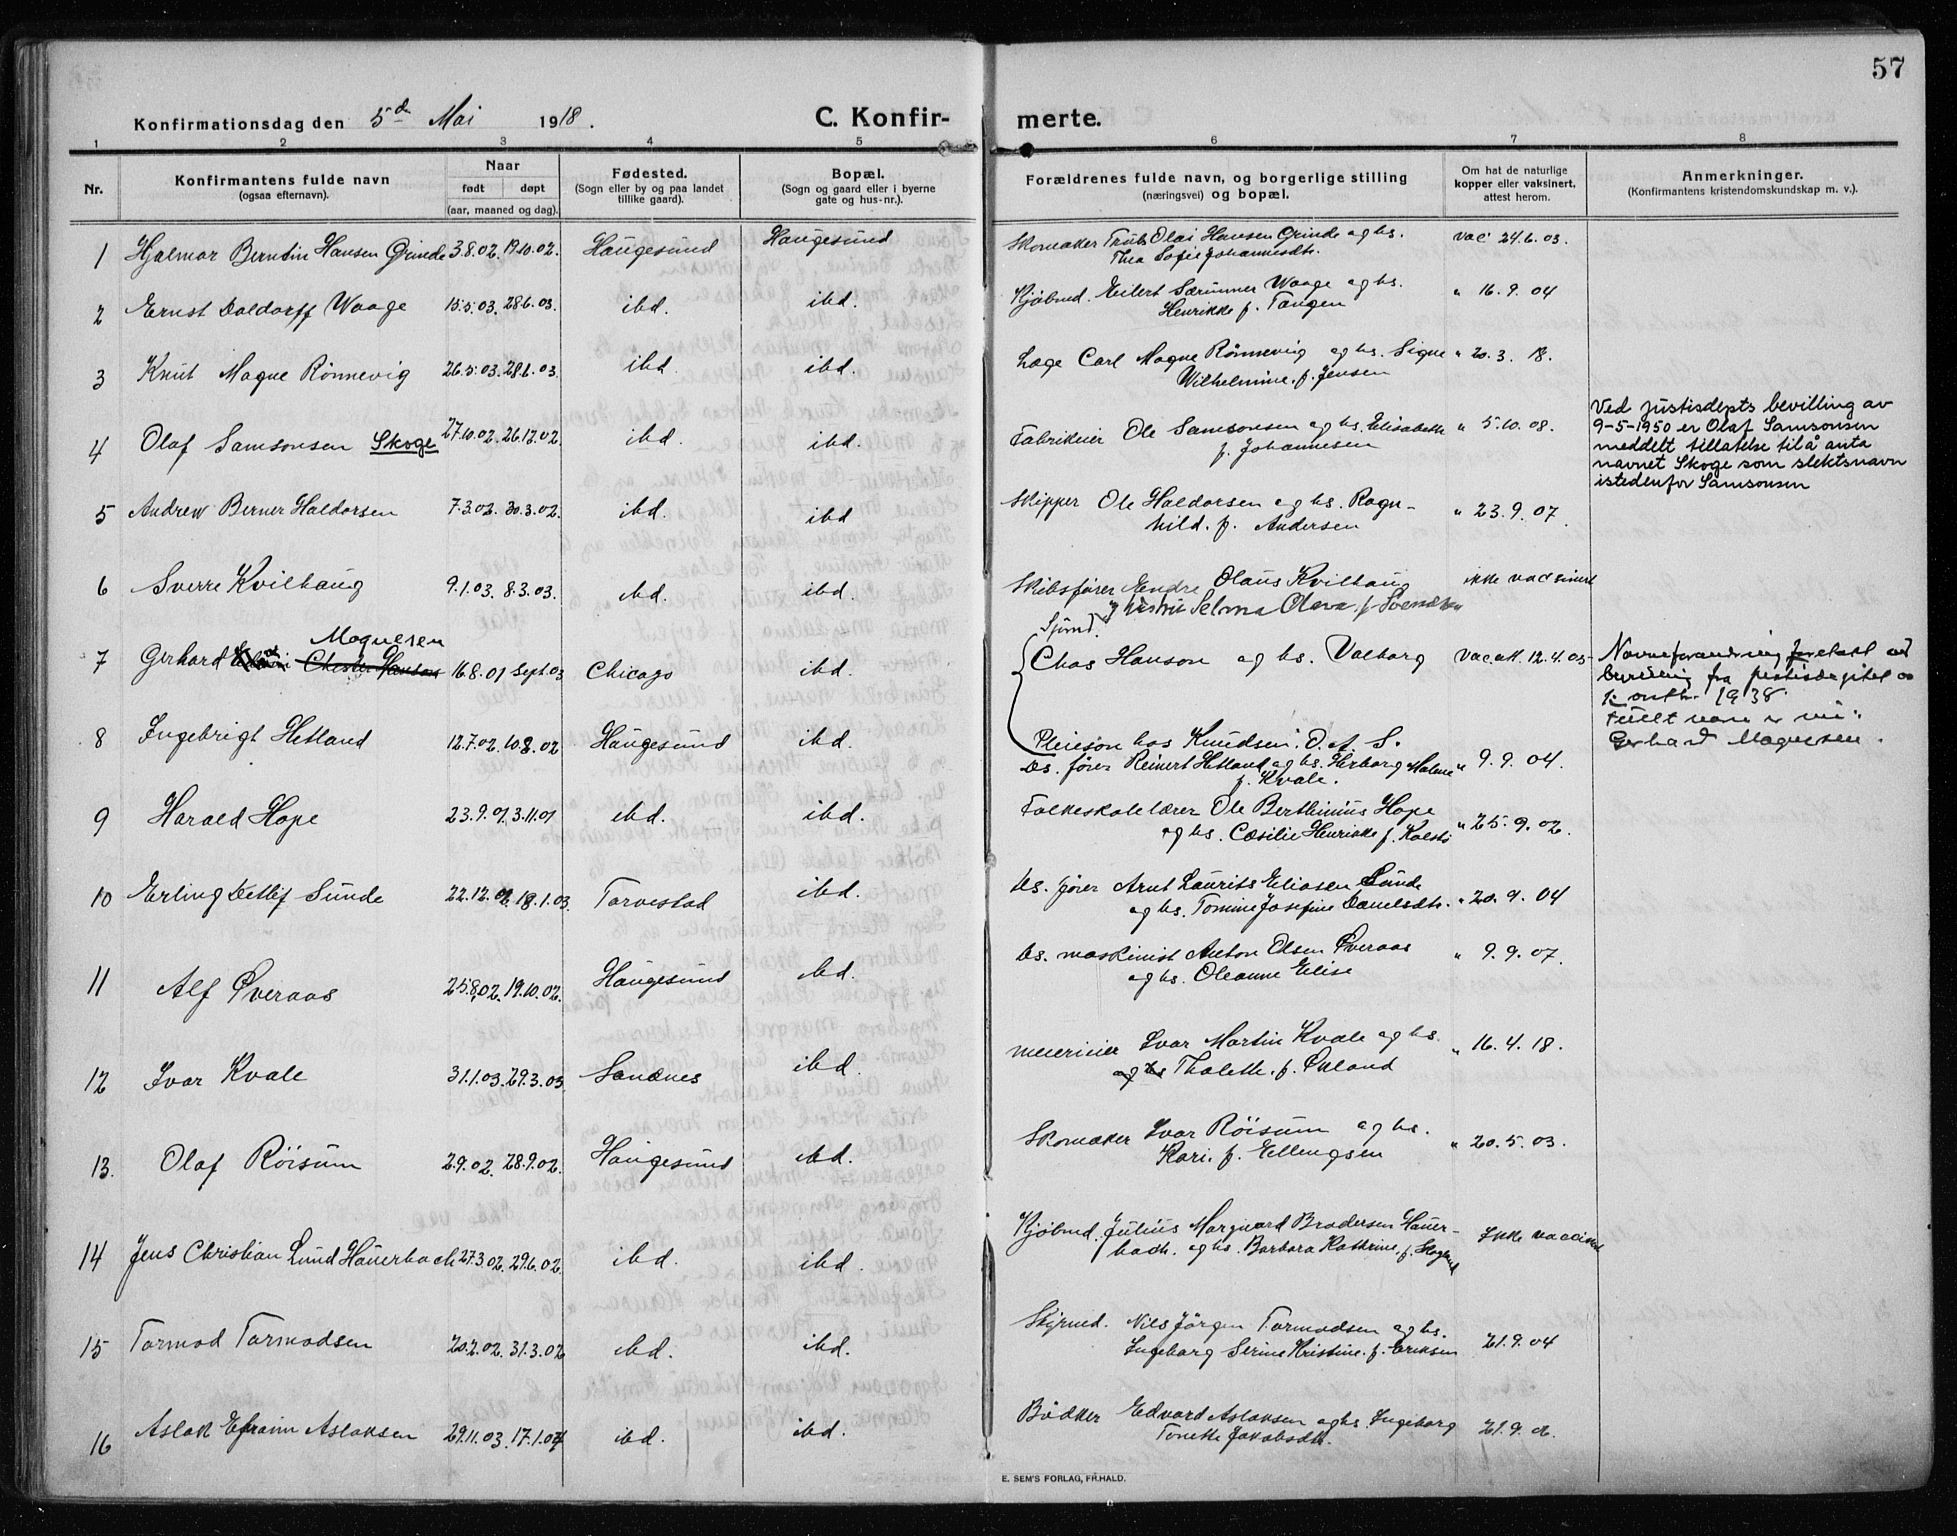 57
Konfirmationsdag den 5d Mai 1918. C. Konfirmerte.
1 2 3 4 5 6 7 8
Nr. Konfirmantens fulde navn (ogsaa efternavn). Naar født døpt (aar, maaned og dag). Fødested. (Sogn eller by og paa landet tillike gaard). Bopæl. (Sogn og gaard eller i byerne gate og hus-nr.). Forældrenes fulde navn, og borgerlige stilling (næringsvei) og bopæl. Om hat de naturlige kopper eller vaksinert, attest herom. Anmerkninger. (Konfirmantens kristendomskundskap m. v.).
1 Hjalmar Berntin Hansen Grinde 3.8.02. 19.10.02. Haugesund Haugesund Skomaker Truls Olai Hansen Grinde og hs. vac 24.6.03.
Thea Sofie Johannesdtr.
2 Ernst Daldorff Waage 15.5.03. 28.6.03. ibd. ibd. Kjøbmd. Eilert Særimner Waage og hs. " 16.9.04
Henrikke f. Tangen
3 Knut Magne Rönnevig 26.5.03. 28.6.03. ibd. ibd. Læge Carl Magne Rönnevig og hs. Signe " 20.3.18.
Wilhelmine f. Jensen
4 Olaf Samsonsen Skoge 27.10.02. 26.12.02. ibd. ibd. Fabrikeier Ole Samsonsen og hs. Elisabeth " 5.10.08.
f. Johannesen
Ved justisdepts bevilling av
9-5-1950 er Olaf Samsonsen
meddelt tillatelse til å anta
navnet Skoge som slektsnavn
istedenfor Samsonsen
5 Andrew Berner Haldorsen 7.3.02. 30.3.02. ibd. ibd Skipper Ole Haldorsen og hs. Ragn- " 23.9.07.
hild. f. Andersen
6 Sverre Kvilhaug 9.1.03. 8.3.03. ibd. ibd. Skibsfører Endre Olaus Kvilhaug ikke vacsinert
Selma Olava f. Svendsen
7 Gerhard Magnesen Chester Hanson 16.8.01 Sept.03 Chicago ibd. Sjømd. Chas Hanson og hs. Valborg Vac. att. 12.4.05
Pleieson hos Knudsen. D. A. S.
Navneforandring foretatt ved
bevilling fra justisdepttet
1938.
Fullt navn er nu:
Gerhard Magnesen.
8 Ingebrigt Hetland 12.7.02. 10.8.02 Haugesund ibd. Ds. fører Reinert Hetland og hs. Herborg Malene " 9.9.04.
f. Kvale.
9 Harald Hope 23.9.01. 3.11.01 ibd. ibd. Folkeskolelærer Ole Berthinius Hope " 25.9.02.
og hs. Cæsilie Henrikke f. Kolstö
10 Erling Detlif Sunde 22.12.02. 18.1.03. Torvestad ibd. Ds. fører Arnt Laurits Eliasen Sunde " 20.9.04
og hs. Tomine Josefine Danielsdtr.
11 Alf Øveraas 25.8.02. 19.10.02. Haugesund ibd. Ds. maskinist Anton Olsen Øveraas " 9.9.07.
og hs. Oleanne Elise
12 Ivar Kvale 31.1.03. 29.3.03 Sandnes ibd. Meierieier Ivar Martin Kvale og hs. " 16.4.18.
og hs Thalette. f. Øxland
13. Olaf Röisum 2.9.02. 28.9.02. Haugesund ibd. Skomaker Ivar Röisum og hs. " 20.5.03.
Kari. f. Ellingsen
14 Jens Christian Lund Hauerbach 27.3.02. 29.6.02. ibd. ibd. Kjøbmd. Julius Marquard Brodersen Hauer- Ikke vaccinert
bach. og hs. Barbara Kathrine f.
15 Tormod Tormodsen 20.2.02. 31.3.02 ibd. ibd. Nils Jörgen Tormodsen og hs. 21.9.04
Ingeborg Serine Kristine. f. Eriksen
16 Aslak Efraim Aslaksen 29.11.03. 17.1.04 ibd. ibd. Bödker Edvard Aslaksen og hs. Ingeborg 21.9.
Tonette Jakobsdtr.
E. SEM'S FORLAG, FR.HALD.